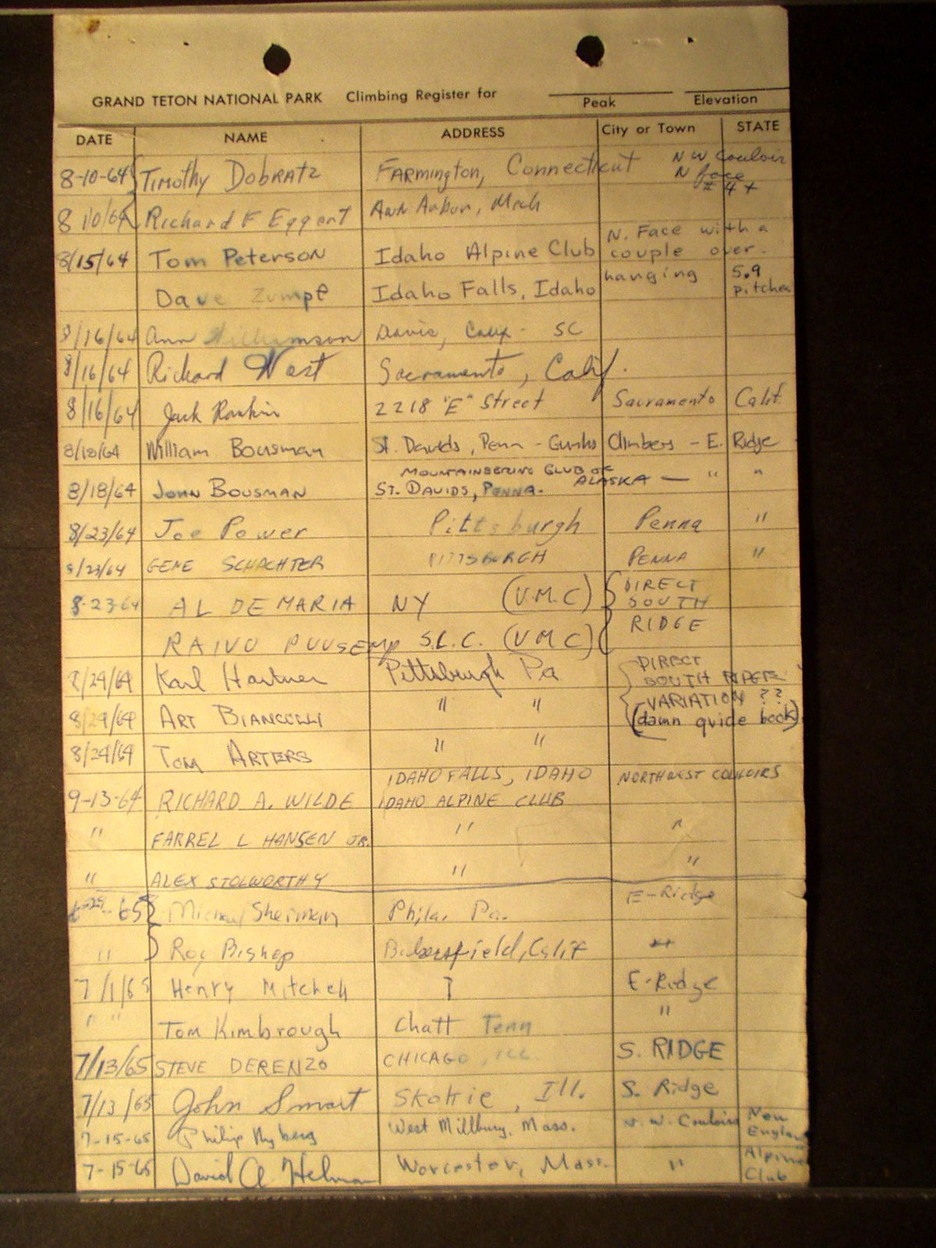 GRAND TETON NATIONAL PARK Climbing Register for
Peak Elevation
DATE NAME ADDRESS City or Town STATE
8-10-64 Timothy Dobratz Farmington, Connecticut N W Couloir N face #4+
8 10/64 Richard F Eggert Ann Arbor, Mich
8/15/64 Tom Peterson Idaho Alpine Club N. Face with a couple over.
Dave Zumpf Idaho Falls, Idaho hanging 5.9 pitches
8/16/64 Ann Williamson Davis, Calif - SC
8/16/64 Richard West Sacramento, Calif.
8/16/64 Jack Rankin 2218 "E" Street Sacramento Calif.
8/18/64 William Bousman St. Davids, Penn - Gunks Climbers - E. Ridge
8/18/64 John Bousman MOUNTAINEERING CLUB OF ALASKA — " "
ST. DAVIDS, PENNA.
8/23/64 Joe Power Pittsburgh Penna "
8/23/64 GENE SCHACHTER PITTSBURGH PENNA "
8-23-64 AL DE MARIA NY (V.M.C) DIRECT SOUTH
RAIVO PUUSEMP S.L.C. (VMC) RIDGE
8/29/64 Karl Hartner Pittsburgh Pa DIRECT SOUTH
8/29/64 ART BIANCULLI " " VARIATION ?? (damn guide book)
8/29/64 Tom ARTERS " "
9-13-64 RICHARD A. WILDE IDAHO FALLS, IDAHO NORTHWEST COULOIRS
IDAHO ALPINE CLUB
" FARREL L HANSEN JR. " "
" ALEX STOLWORTHY " "
65 Michael Sherman Phila. Pa. E-Ridge
" Roy Bishop Bakersfield, Calif "
7/1/65 Henry Mitchell ? E-Ridge
" " Tom Kimbrough Chatt Tenn "
7/13/65 STEVE DERENZO CHICAGO, ILL. S. RIDGE
7/13/65 John Smart Skokie, Ill. S. Ridge
7-15-65 Philip Nyberg West Millbury, Mass. N.W. Couloirs New England
7-15-65 David A. Helman Worcester, Mass. " Alpine Club